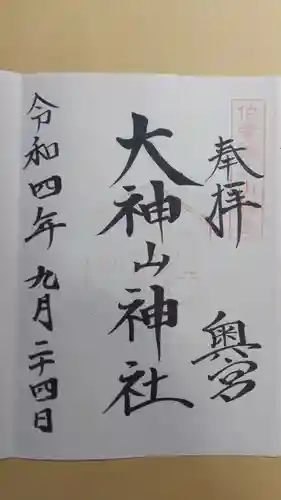 奉拝 奥宮
大神山神社
令和四年九月二十四日